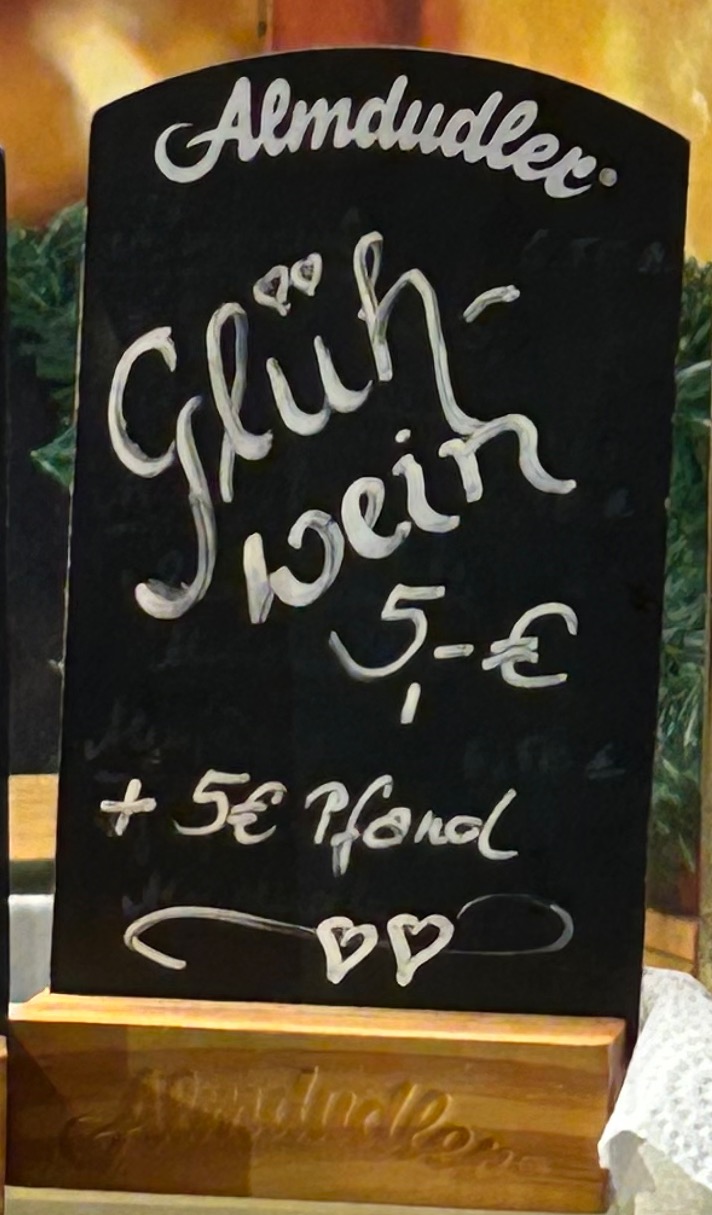 Almdudler
Glüh-
wein
5,-€
+ 5€ Pfand
Almdudler